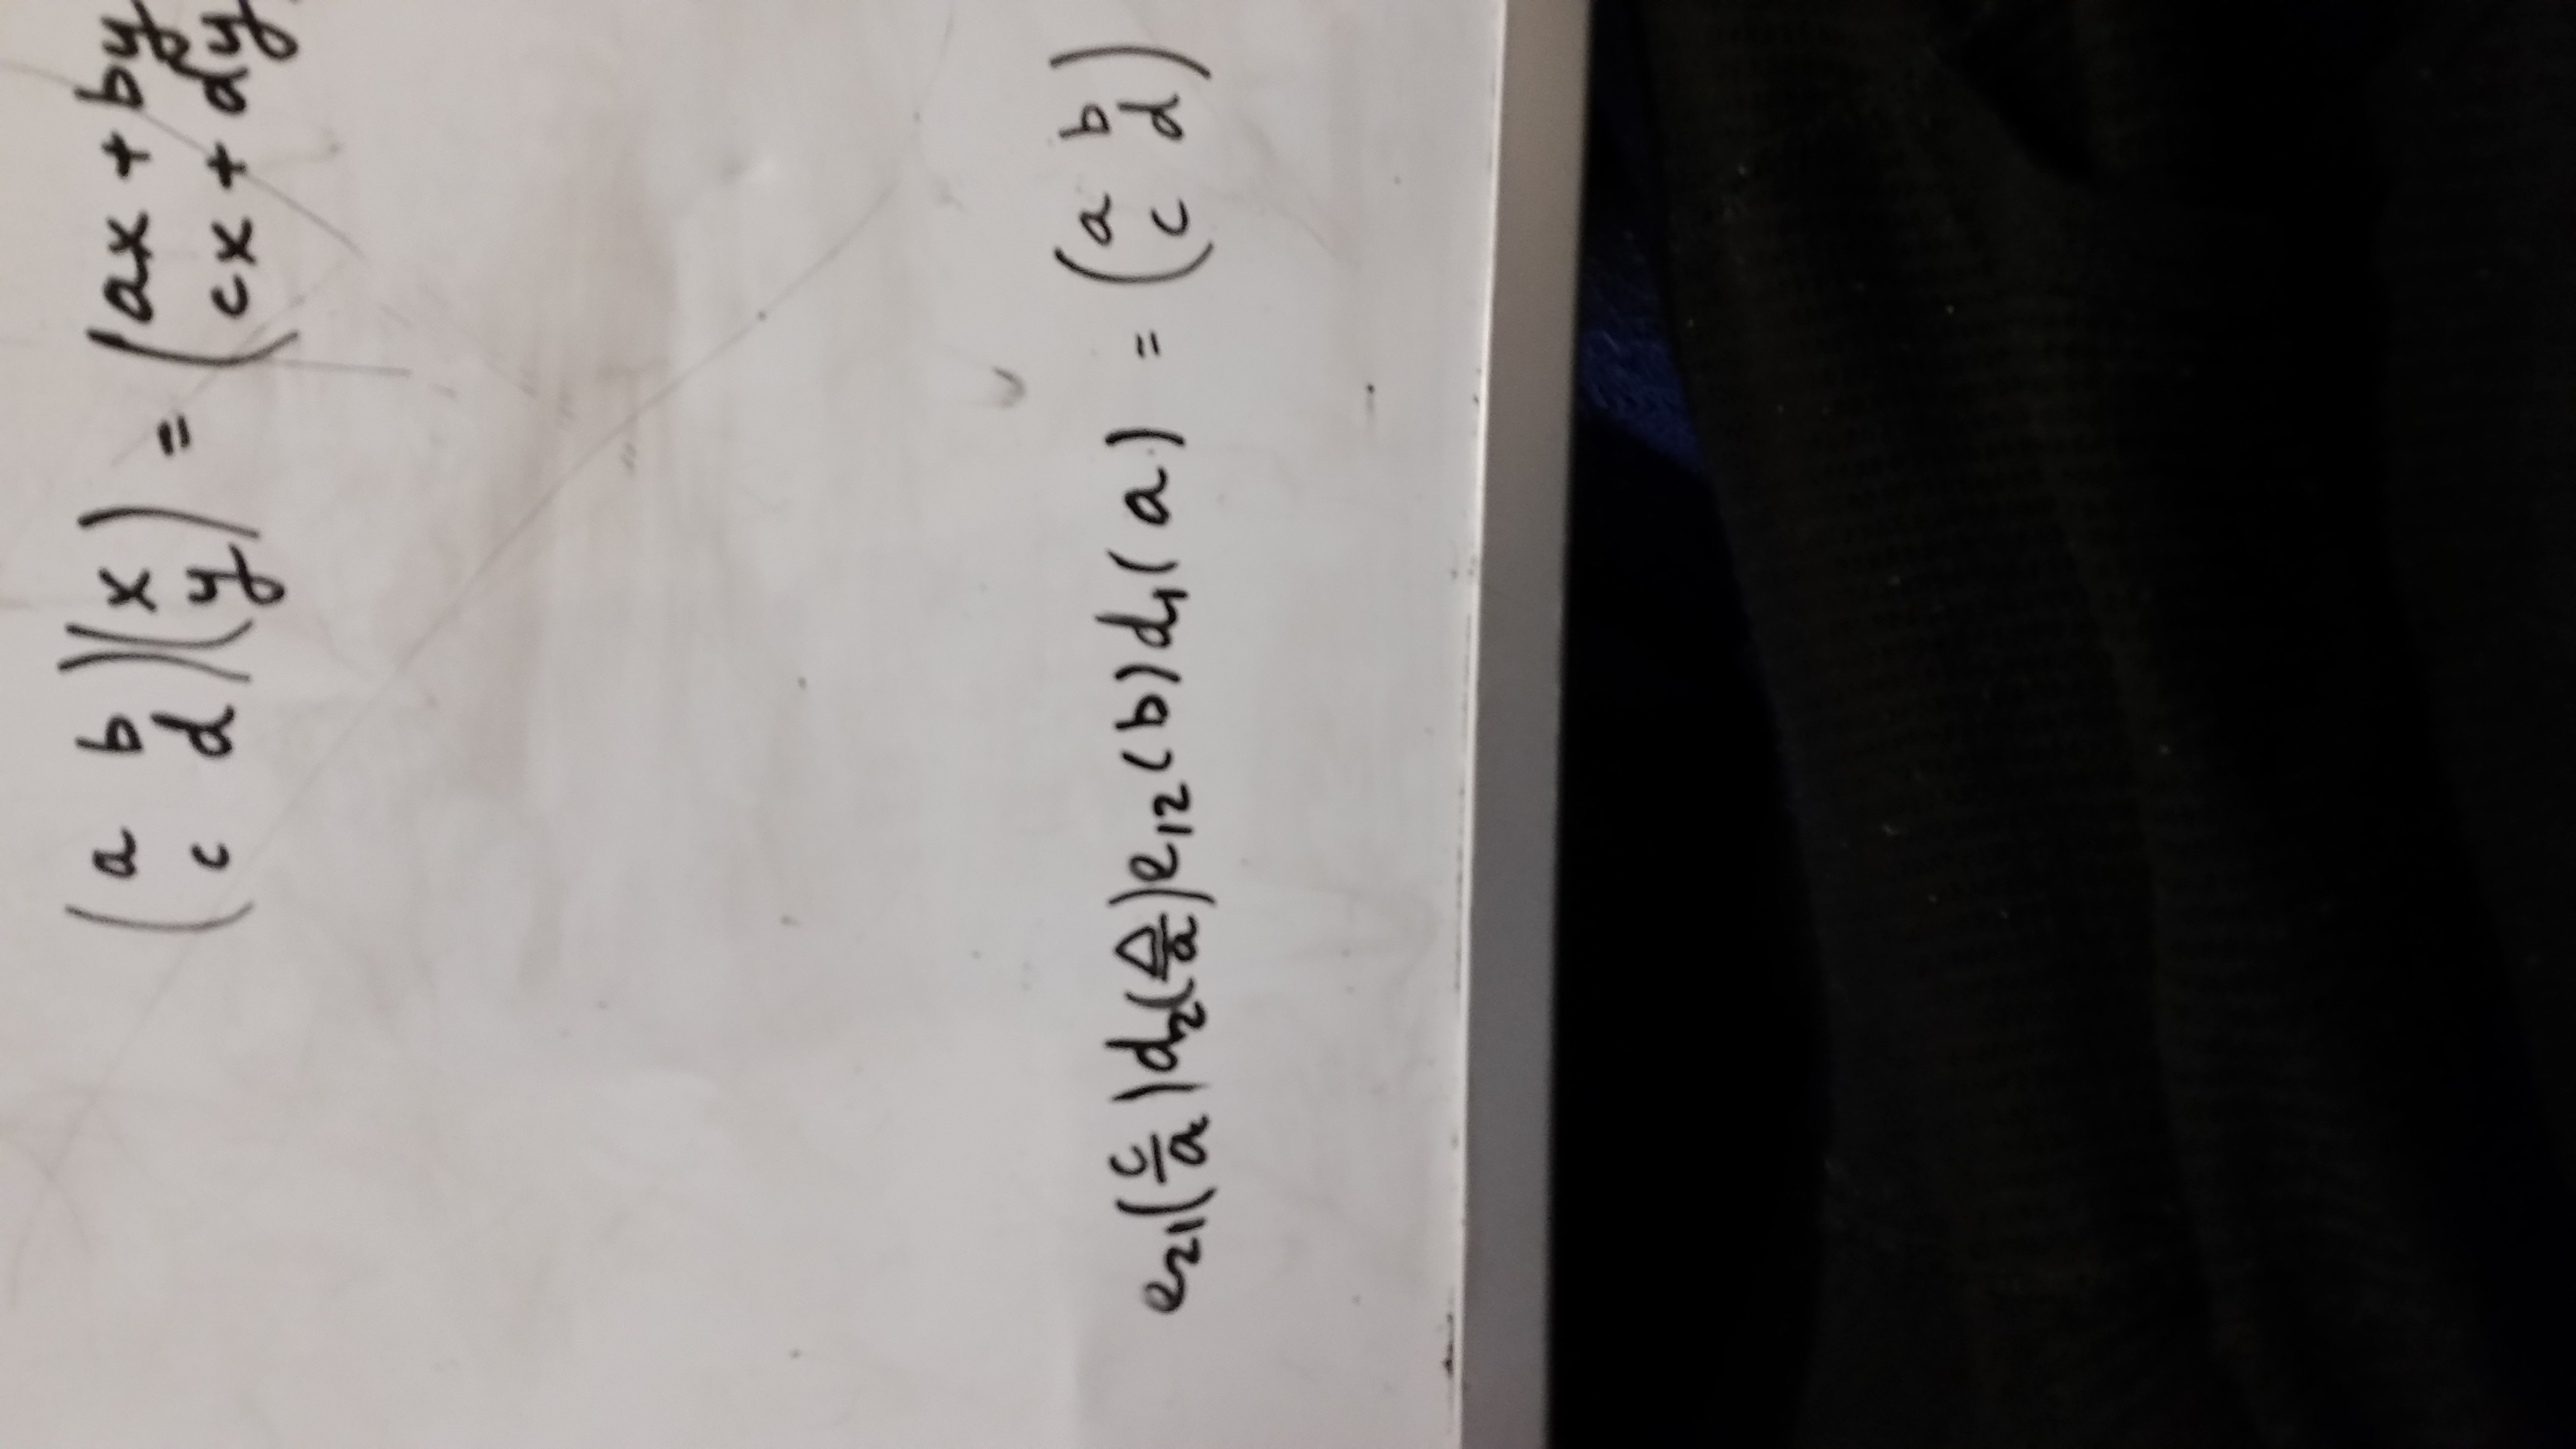 (a b)(x) = (ax + by
(c d)(y) (cx + dy
e₂₁(c/a)d₂(Δ/a)e₁₂(b)d₁(a) = (a b)
(c d)